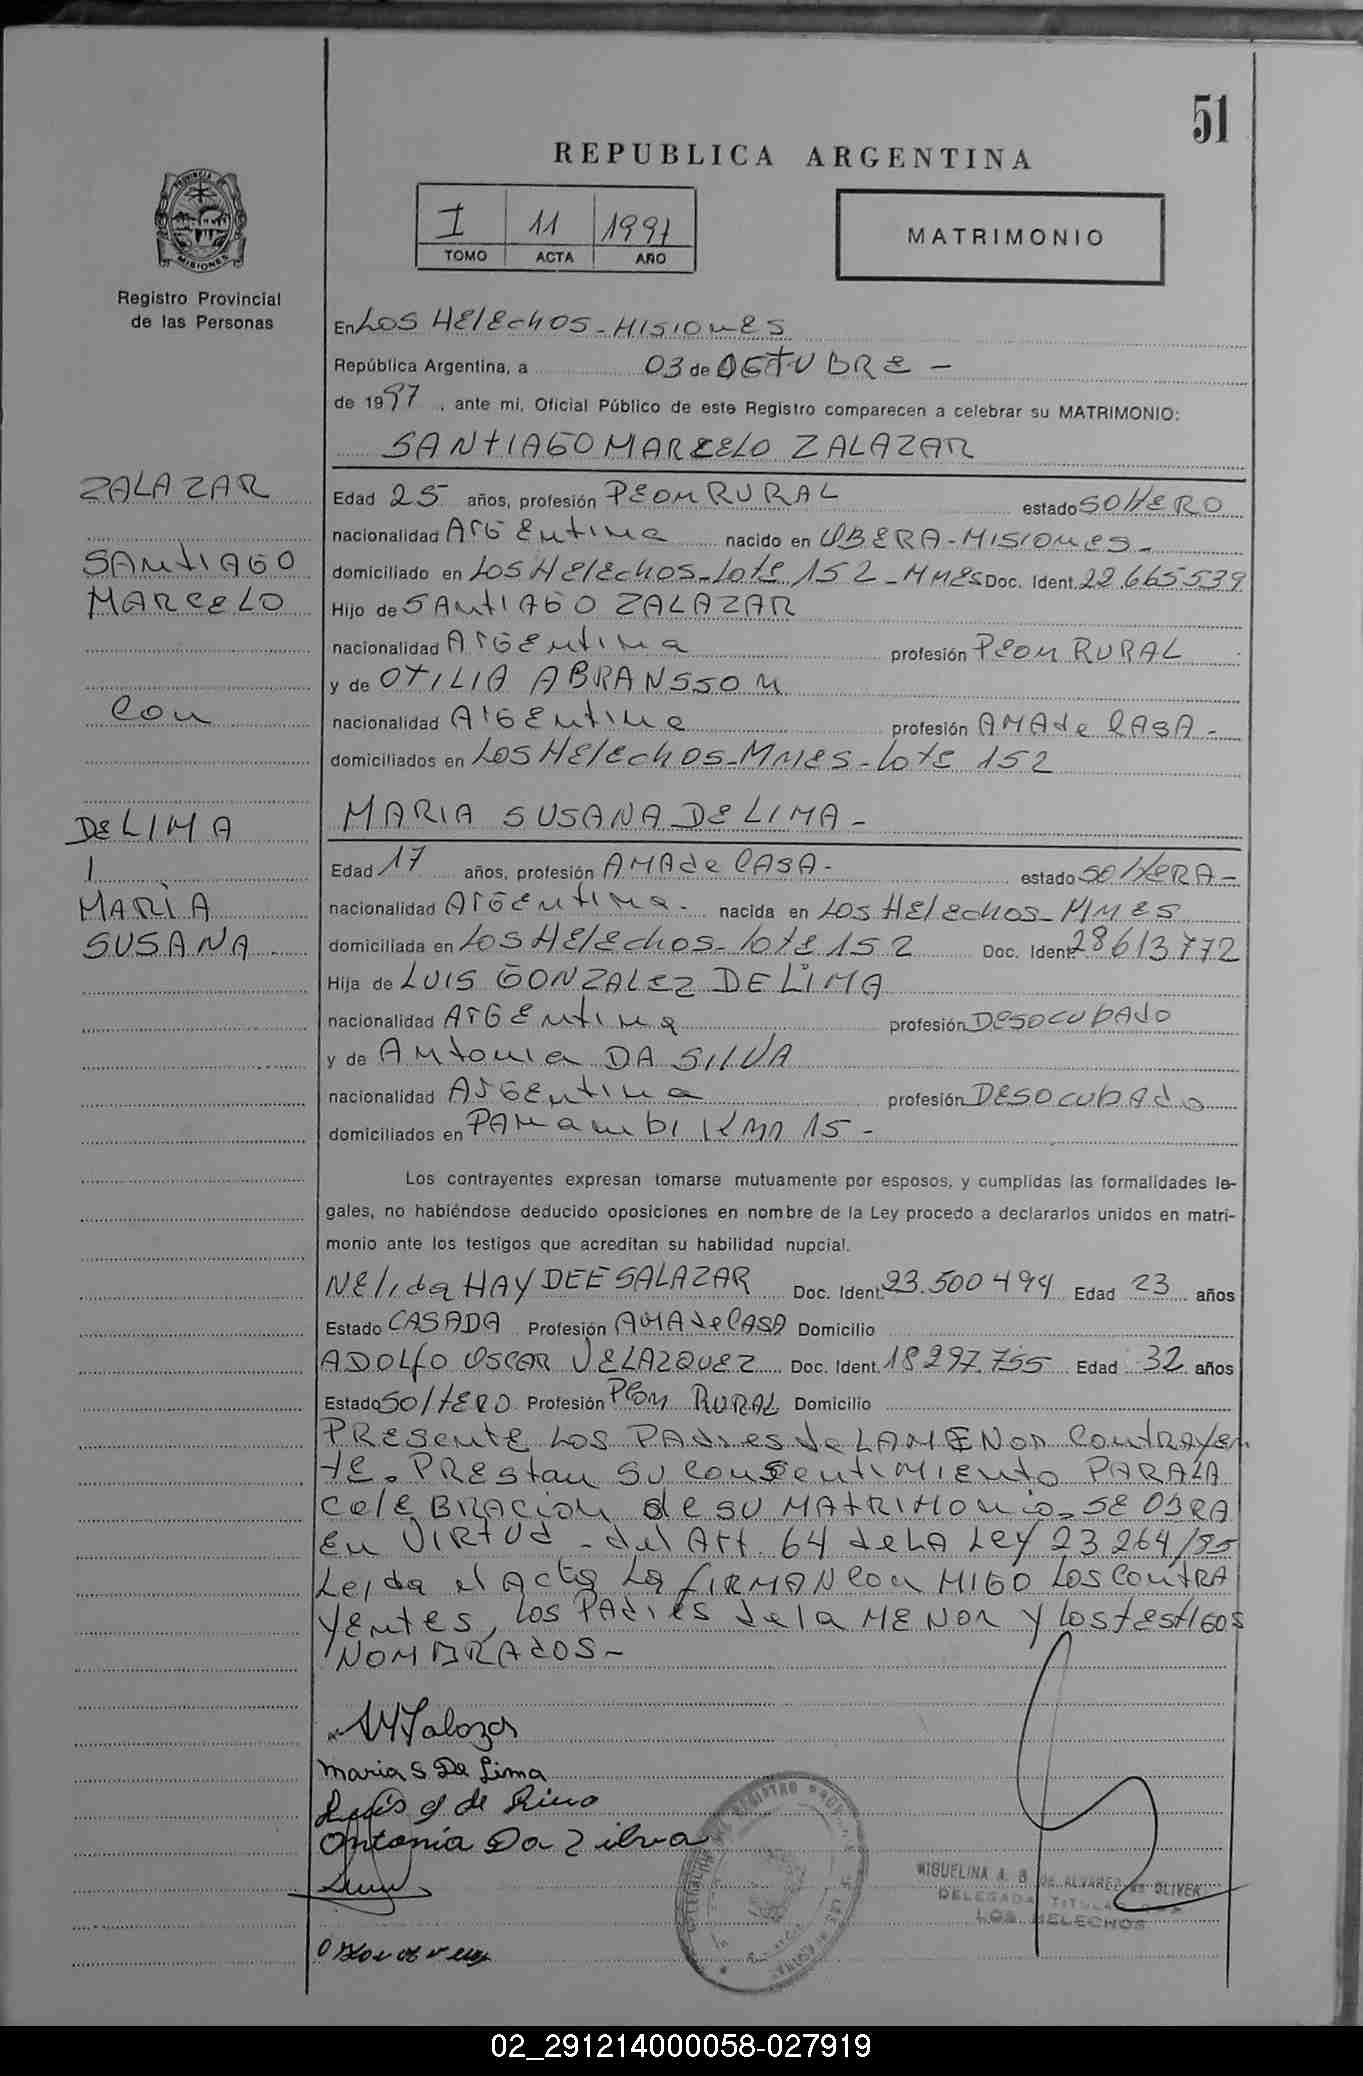 51
REPUBLICA ARGENTINA
I 11 1997
TOMO ACTA AÑO
MATRIMONIO
PROVINCIA DE
MISIONES
Registro Provincial
de las Personas
En LOS HELECHOS - MISIONES
República Argentina, a 03 de OCTUBRE -
de 1997, ante mí, Oficial Público de este Registro comparecen a celebrar su MATRIMONIO:
SANTIAGO MARCELO ZALAZAR
ZALAZAR
SANTIAGO
MARCELO
con
DE LIMA
MARÌA
SUSANA
Edad 25 años, profesión PEON RURAL estado SOLTERO
nacionalidad ARGENTINA nacido en OBERA - MISIONES -
domiciliado en LOS HELECHOS - Lote 152 - MNES Doc. Ident. 22.665.539
Hijo de SANTIAGO ZALAZAR
nacionalidad ARGENTINA profesión PEON RURAL
y de OTILIA ABRANSSON
nacionalidad ARGENTINA profesión AMA de CASA -
domiciliados en LOS HELECHOS - MNES - Lote 152
MARIA SUSANA DE LIMA -
Edad 17 años, profesión AMA de CASA - estado SOLTERA -
nacionalidad ARGENTINA - nacida en LOS HELECHOS - MNES
domiciliada en LOS HELECHOS - lote 152 Doc. Ident. 28613772
Hija de LUIS GONZALEZ DE LIMA
nacionalidad ARGENTINA profesión DESOCUPADO
y de ANTONIA DA SILVA
nacionalidad ARGENTINA profesión DESOCUPADO
domiciliados en PANAMBI KM 15 -
Los contrayentes expresan tomarse mutuamente por esposos, y cumplidas las formalidades le-
gales, no habiéndose deducido oposiciones en nombre de la Ley procedo a declararlos unidos en matri-
monio ante los testigos que acreditan su habilidad nupcial.
NELIDA HAYDEE SALAZAR Doc. Ident. 23.500494 Edad 23 años
Estado CASADA Profesión AMA de CASA Domicilio
ADOLFO OSCAR VELAZQUEZ Doc. Ident. 18297.755 Edad 32 años
Estado SOLTERO Profesión PEON RURAL Domicilio
PRESENTE LOS PADRES de LA MENOR CONTRAYEN
TE. PRESTAN SU CONSENTIMIENTO PARA LA
CELEBRACION de SU MATRIMONIO. SE OBRA
EN VIRTUD - del Art. 64 de LA Ley 23264/85
Leída el Acta La FIRMAN CON MIGO LOS CONTRA
YENTES, LOS PADRES de la MENOR Y LOS TESTIGOS
NOMBRADOS -
Maria S De Lima
Antonia Da Zilva
MIGUELINA A. B. DE ALVAREZ DE OLIVERA
DELEGADA TITULAR
LOS HELECHOS
02_291214000058-027919